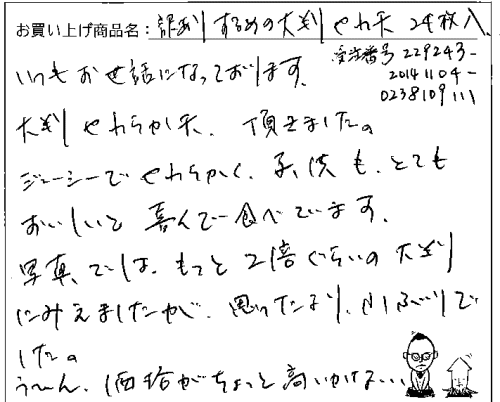 お買い上げ商品名：訳ありするめの大判やわ天 24枚入
受注番号 229243-
20141104-
0238109111
いつもお世話になっております。
大判やわらか天、頂きました。
ジューシーでやわらかく、子供も、とても
おいしいと喜んで食べています。
写真では、もっと2倍ぐらいの大判
にみえましたが、思ったより、小ぶりで
した。
う～ん、価格がちょっと高いかな…